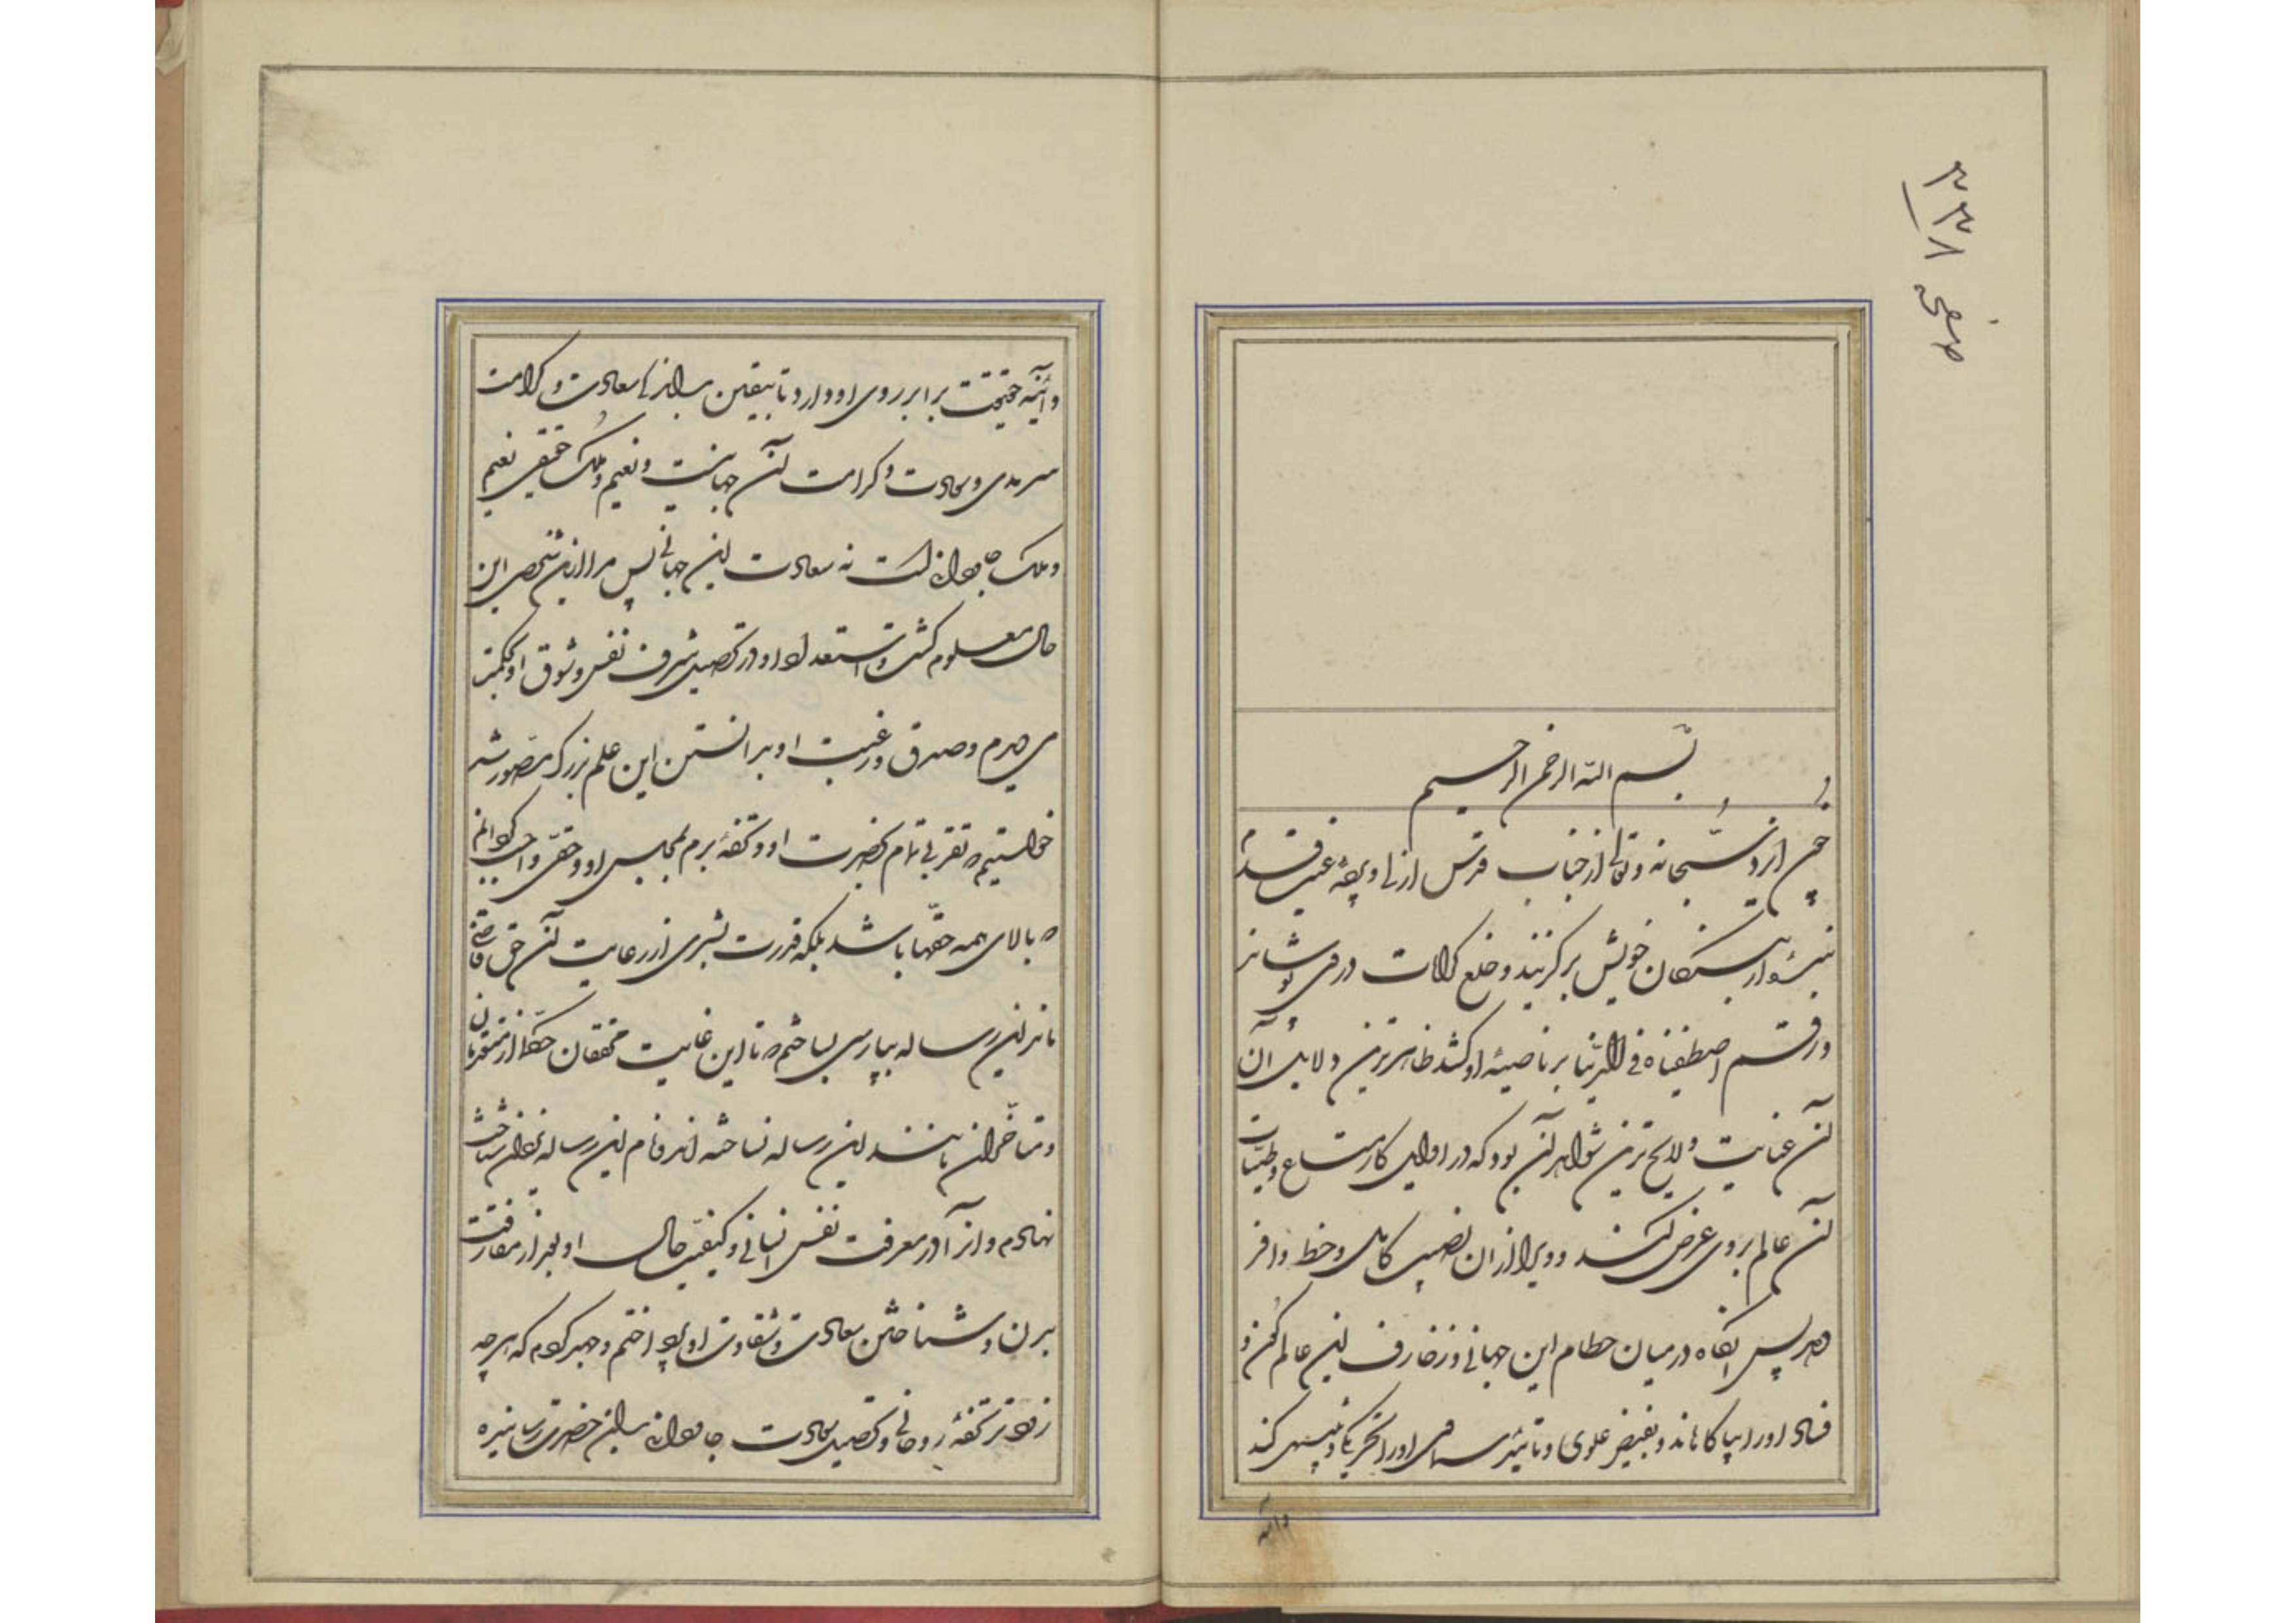 بسم الله الرحمن الرحیم
چون ایزد سبحانه و تعالی از جناب قدس ازلی و
بنده از بستگان خویش برگزیند و خلع کرامات در وی پوشاند
و رقم اصطفیناه فی الدنیا بر ناصیهٔ او کشد ظاهرترین دلایل آن
آن عنایت و لایح‌ترین شواهد آن بود که در اوایل کار متاع و طیبات
آن عالم بروی عرض کنند و ویرا از ان نصیب کامل و حظ وافر
دهد پس انکاه در میان حطام این جهانی و زخارف این عالم کون و
فساد او را پاک ماند و بفیض علوی و تاثیر سماوی او را کند
وآینه
وآینه حقیقت برابر روی او دارد تا بیقین بداند که سعادت و کرامت
سرمدی و سعادت و کرامت آن جهانیست و نعیم و ملک حقیقی نعیم
و ملک جاودانیست نه سعادت این جهانی پس مرا از این شخص این
حال معلوم کشت و استعداد او در تحصیل شرف نفس و شوق او بحکمت
می‌دیدم و صدق و رغبت او بدانستن این علم بزرک متصور شد
خواستیم که تقربی تمام بحضرت او و تحفهٔ برم بمجلس او و حقی واجب کردانم
که بالای همه حقها باشد بلکه قدرت بشری از رعایت آن حق قاصر
ماند این رساله بپارسی بساختم که تا این غایت محققان حکما از متقدمان
و متاخران مانند این رساله نساخته‌اند و نام این رساله
نهادم و آنرا در معرفت نفس انسانی و کیفیت حال او بعد از مفارقت
بدن و شناختن سعادت و شقاوت او پرداختم و جهد کردم که هر چه
زودتر تحفهٔ روحانی و تحصیل سعادت جاودانی بدین حضرت رسانیده